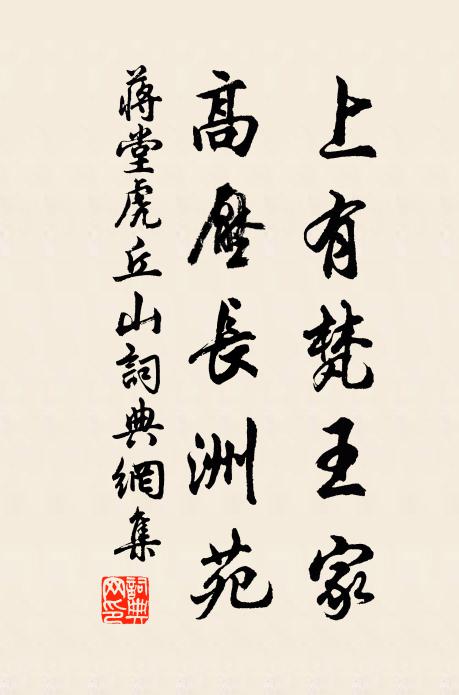 上有梵王家
高壓長洲苑
蔣堂虎丘山詞典網集
詞典网印